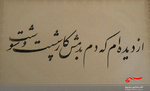 از دیده‌ام که دم بدمش کار شست و شوست